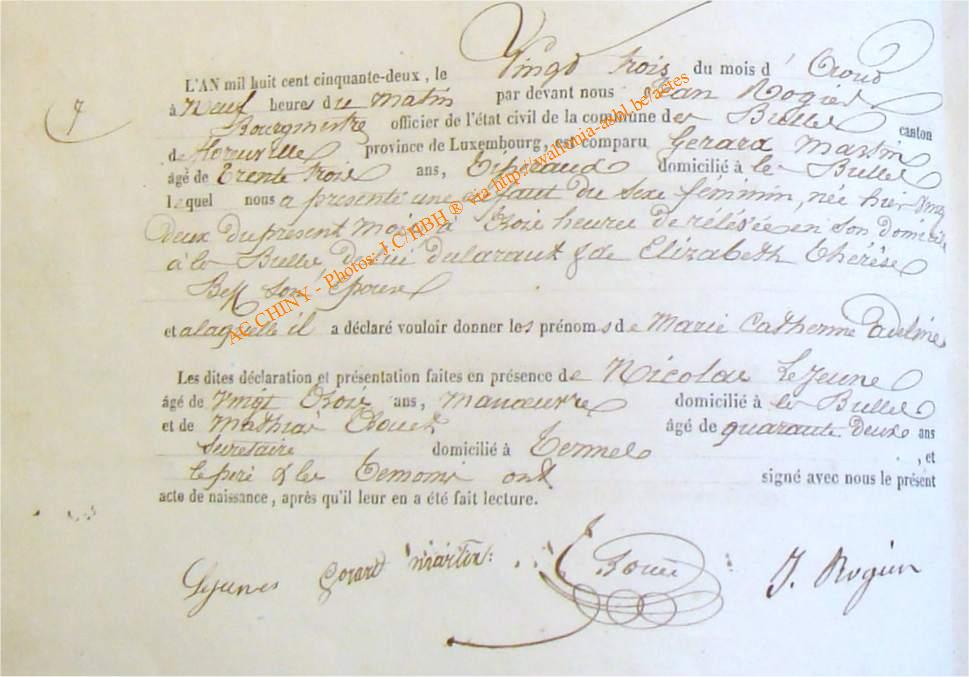 L'AN mil huit cent cinquante-deux, le Vingt trois du mois d' Aout
7
à Neuf heures du matin par devant nous Jean Rogier
Bourgmestre officier de l'état civil de la commune des Bulles canton
de Florenville province de Luxembourg, est comparu Gerard Martin
âgé de Trente Trois ans, domicilié à les Bulles
lequel nous a présenté une enfant du sexe féminin, née hier vingt
deux du présent mois à Trois heures de relévée en son domicile
à les Bulles de lui déclarant & de Elizabeth Thérèse
son épouse
et à laquelle il a déclaré vouloir donner les prénoms de Marie Catherine Adeline
Les dites déclaration et présentation faites en présence de Nicolas Lejeune
âgé de Vingt Trois ans, Manoeuvre domicilié à les Bulles
et de Mathias âgé de quarante Deux ans
Secretaire domicilié à Termes , et
le père & les Temoins ont signé avec nous le présent
acte de naissance, après qu'il leur en a été fait lecture.
Lejeune Gerard Martin J. Rogier
AC CHINY - Photos: J.C HBH ® via http://wallonia-asbl.be/actes